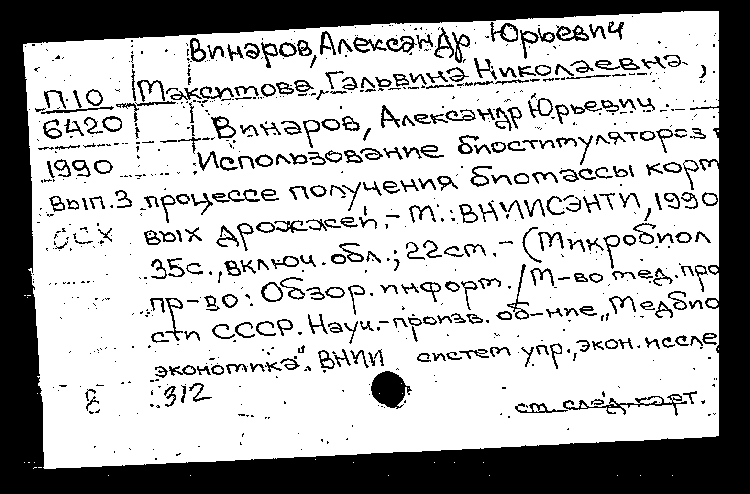 Винаров, Александр Юрьевич
П.10 Максимова, Гальвина Николаевна,
6420 Винаров, Александр Юрьевич.
1990 Использование биостимуляторов в
Вып.3 процессе получения биомассы корм
ОСХ вых дрожжей. - М.: ВНИИСЭНТИ, 1990
35с., включ. обл.; 22см. - (Микробиол
пр-во: Обзор. информ. / М-во мед. про
сти СССР. Науч.-произв. об-ние „Медбио
экономика". ВНИИ систем упр., экон. иссле
в 312
см. след. карт.